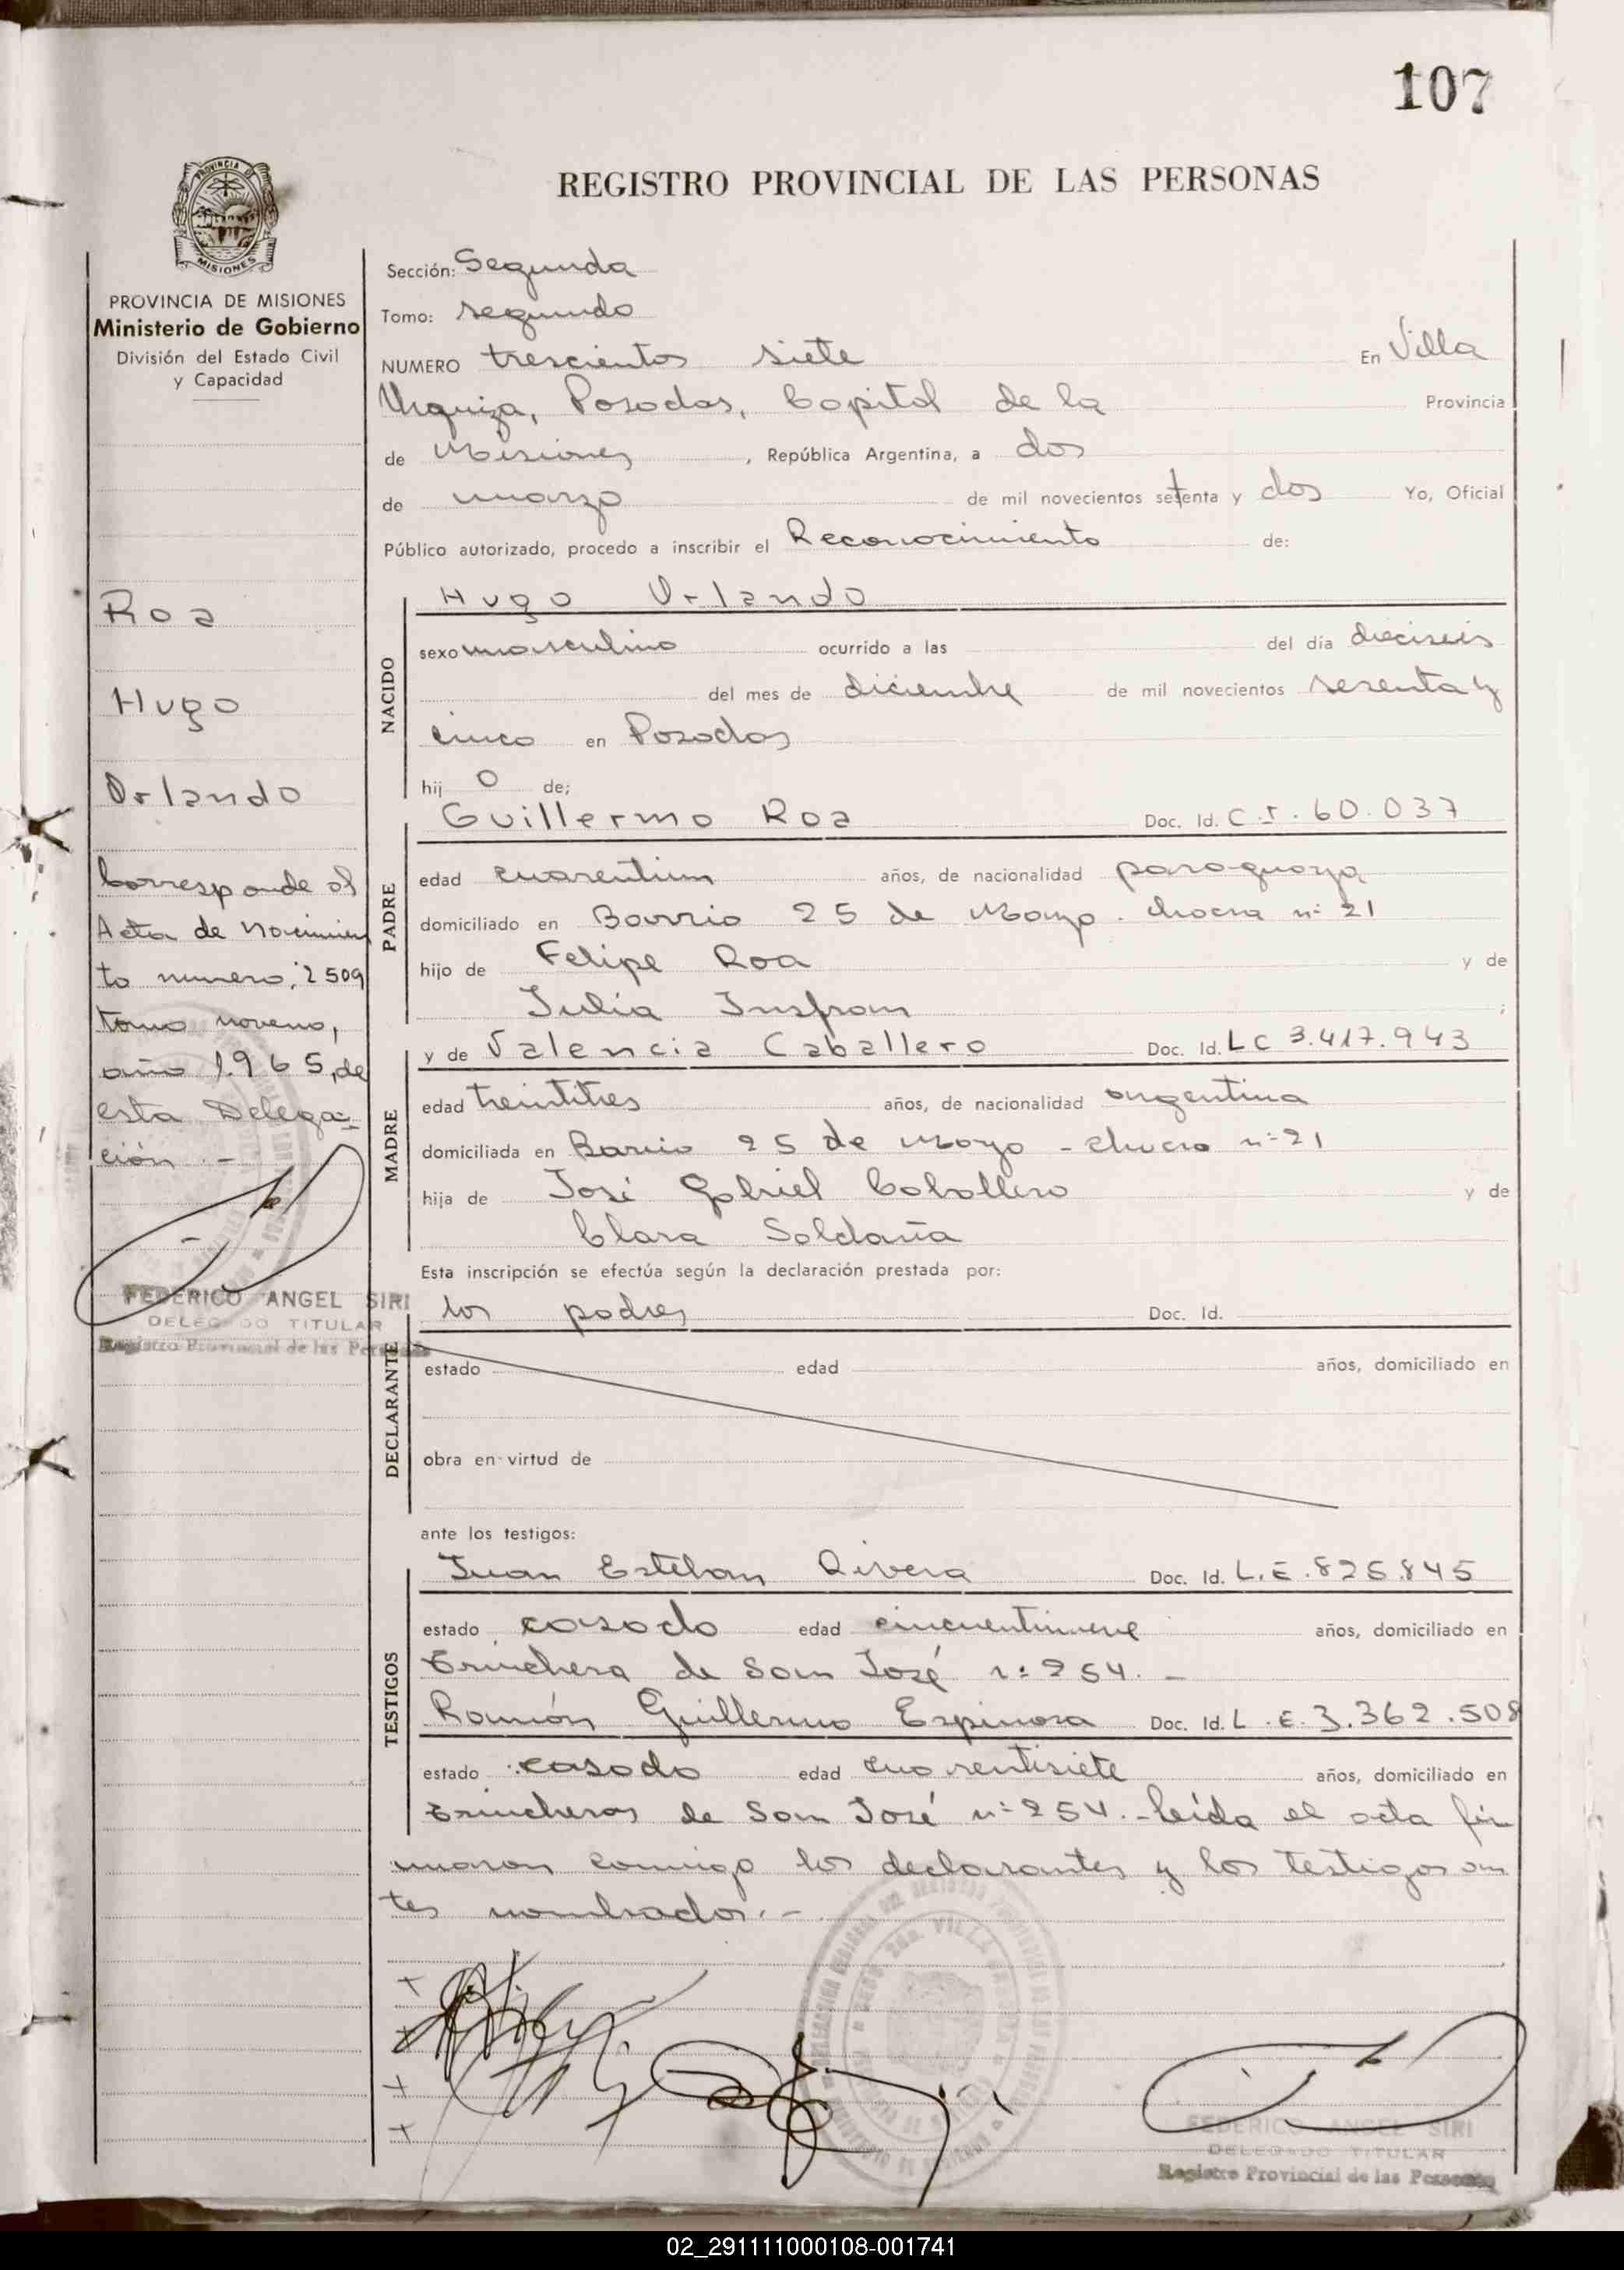 107
REGISTRO PROVINCIAL DE LAS PERSONAS
PROVINCIA DE MISIONES
Ministerio de Gobierno
División del Estado Civil
y Capacidad
Roa
Hugo
Orlando
Corresponde al
Acta de nacimien
to numero, 2509
tomo noveno,
año 1.965, de
esta Delega-
ción.-
FEDERICO ANGEL SIRI
DELEGADO TITULAR
Registro Provincial de las Personas
Sección: Segunda
Tomo: segundo
NUMERO trescientos siete En Villa
Urquiza, Posadas, Capital de la Provincia
de Misiones, República Argentina, a dos
de marzo de mil novecientos setenta y dos Yo, Oficial
Público autorizado, procedo a inscribir el Reconocimiento de:
NACIDO
Hugo Orlando
sexo masculino ocurrido a las del día dieciseis
del mes de diciembre de mil novecientos sesenta y
cinco en Posadas
hij o de;
PADRE
Guillermo Roa Doc. Id. C.I. 60.037
edad cuarentiun años, de nacionalidad paraguaya
domiciliado en Barrio 25 de Mayo. chacra n° 21
hijo de Felipe Roa y de
Julia Insfran ;
MADRE
y de Valencia Caballero Doc. Id. LC 3.417.943
edad treintitres años, de nacionalidad argentina
domiciliada en Barrio 25 de Mayo - chacra n° 21
hija de José Gabriel Caballero y de
Clara Saldaña
Esta inscripción se efectúa según la declaración prestada por:
DECLARANTE
los padres Doc. Id.
estado edad años, domiciliado en
obra en virtud de
ante los testigos:
TESTIGOS
Juan Esteban Rivera Doc. Id. L.E. 825.845
estado casado edad cincuentinueve años, domiciliado en
Trinchera de San José n° 254.-
Ramón Guillermo Espinosa Doc. Id. L.E. 3.362.508
estado casado edad cuarentisiete años, domiciliado en
Trincheras de San José n° 254.- Leída el acta fir
maron conmigo los declarantes y los testigos an
tes nombrados.-
FEDERICO ANGEL SIRI
DELEGADO TITULAR
Registro Provincial de las Personas
02_291111000108-001741